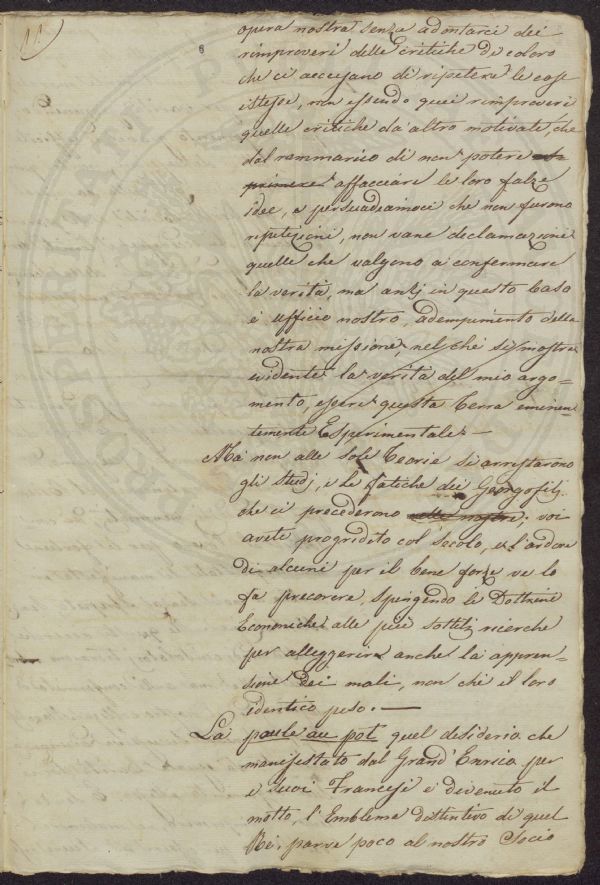 11.
opera nostra senza adontarci dei
rimproveri delle critiche di coloro
che ci accusano di ripetere le cose
istesse, non essendo quei rimproveri
quelle critiche da altro motivate che
dal rammarico di non potere
primere affacciare le loro false
idee, e persuadiamoci che non furono
repetizioni, non vane declamazioni
quelle che valgono a confermare
la verità, ma anzi in questo Caso
è ufficio nostro, adempimento della
nostra missione, nel che si mostra
evidente la verità del mio argo-
mento, essere questa Terra eminen-
temente Esperimentale —
Ma non alle sole Teorie si arrestarono
gli studj, e le fatiche dei Georgofili
che ci precederono alle nostre; voi
avete progredito col secolo, e l'ardore
di alcuni per il bene forse ve lo
fa precorrere, spingendo le Dottrine
Economiche alle più sottili ricerche
per alleggerire anche la appren-
sione dei mali, non che il loro
identico peso. —
La poule au pot quel desiderio che
manifestato dal Grand'Enrico per
i suoi Francesi è divenuto il
motto, l'Emblema distintivo di quel
Rè, parve poco al nostro Socio